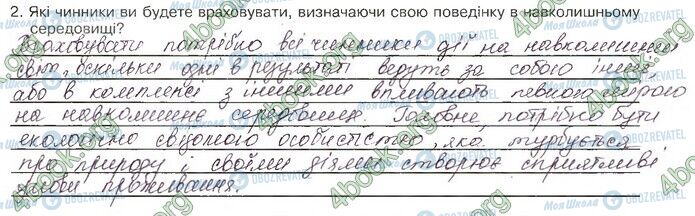 2. Які чинники ви будете враховувати, визначаючи свою поведінку в навколишньому
середовищі?
Враховувати потрібно всі чинники дії на навколишній
світ, оскільки одні в результаті ведуть за собою інші,
або в комплексі з іншими впливають певною мірою
на навколишнє середовище. Головне, потрібно бути
екологічно свідомою особистістю, яка турбується
про природу і своїми діями створює сприятливі
умови проживання.